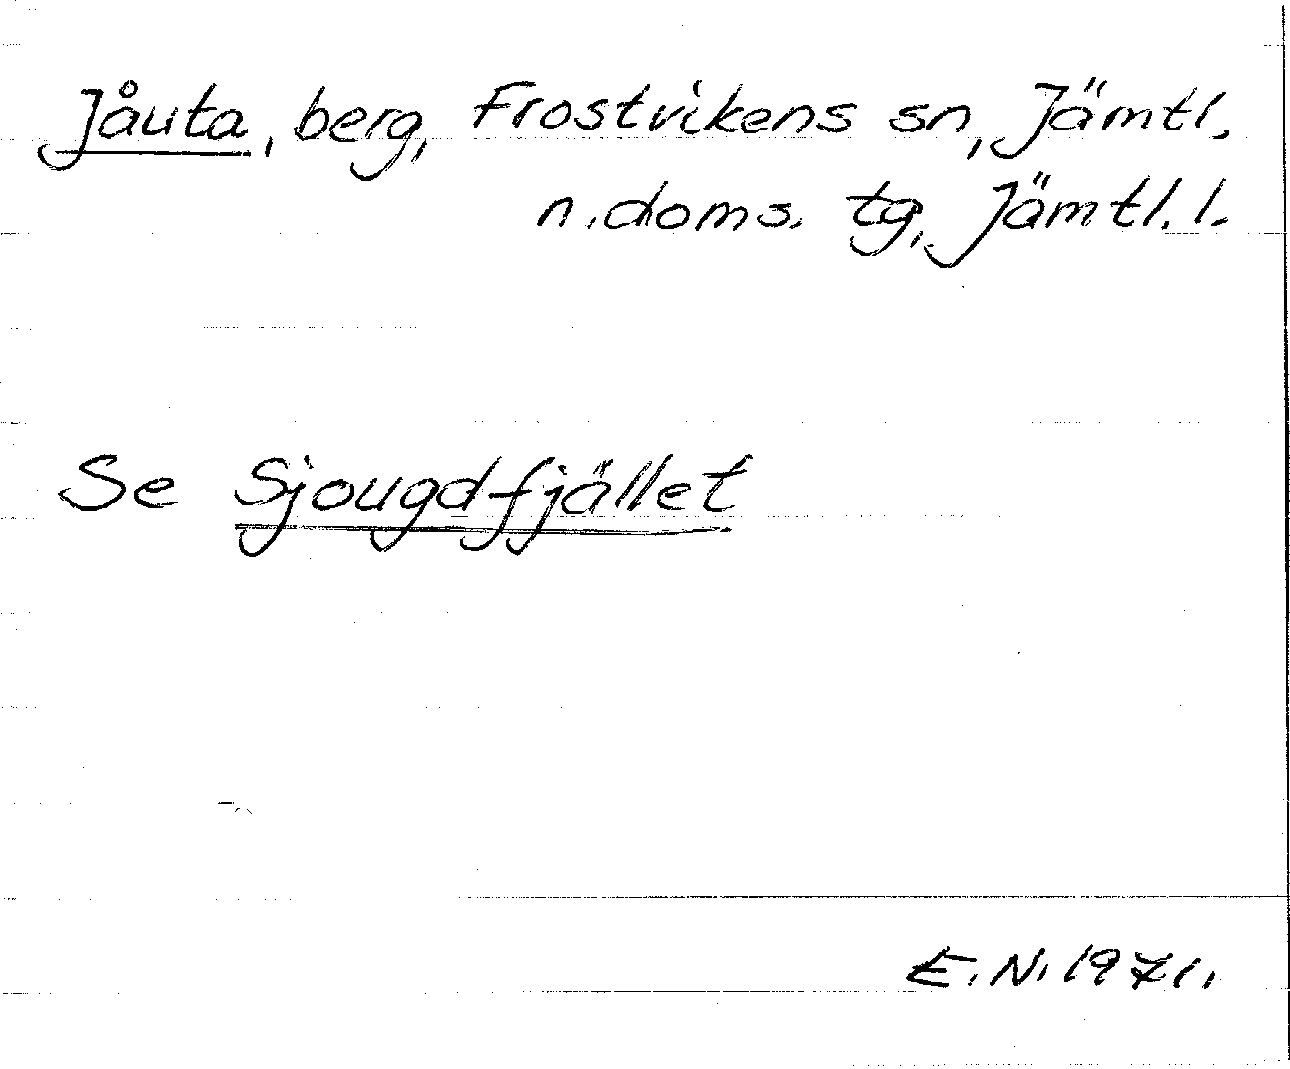 Jåuta, berg, Frostvikens sn, Jämtl.
n. doms. tg, Jämtl. l.
Se Sjougdfjället
E. N. 1971.